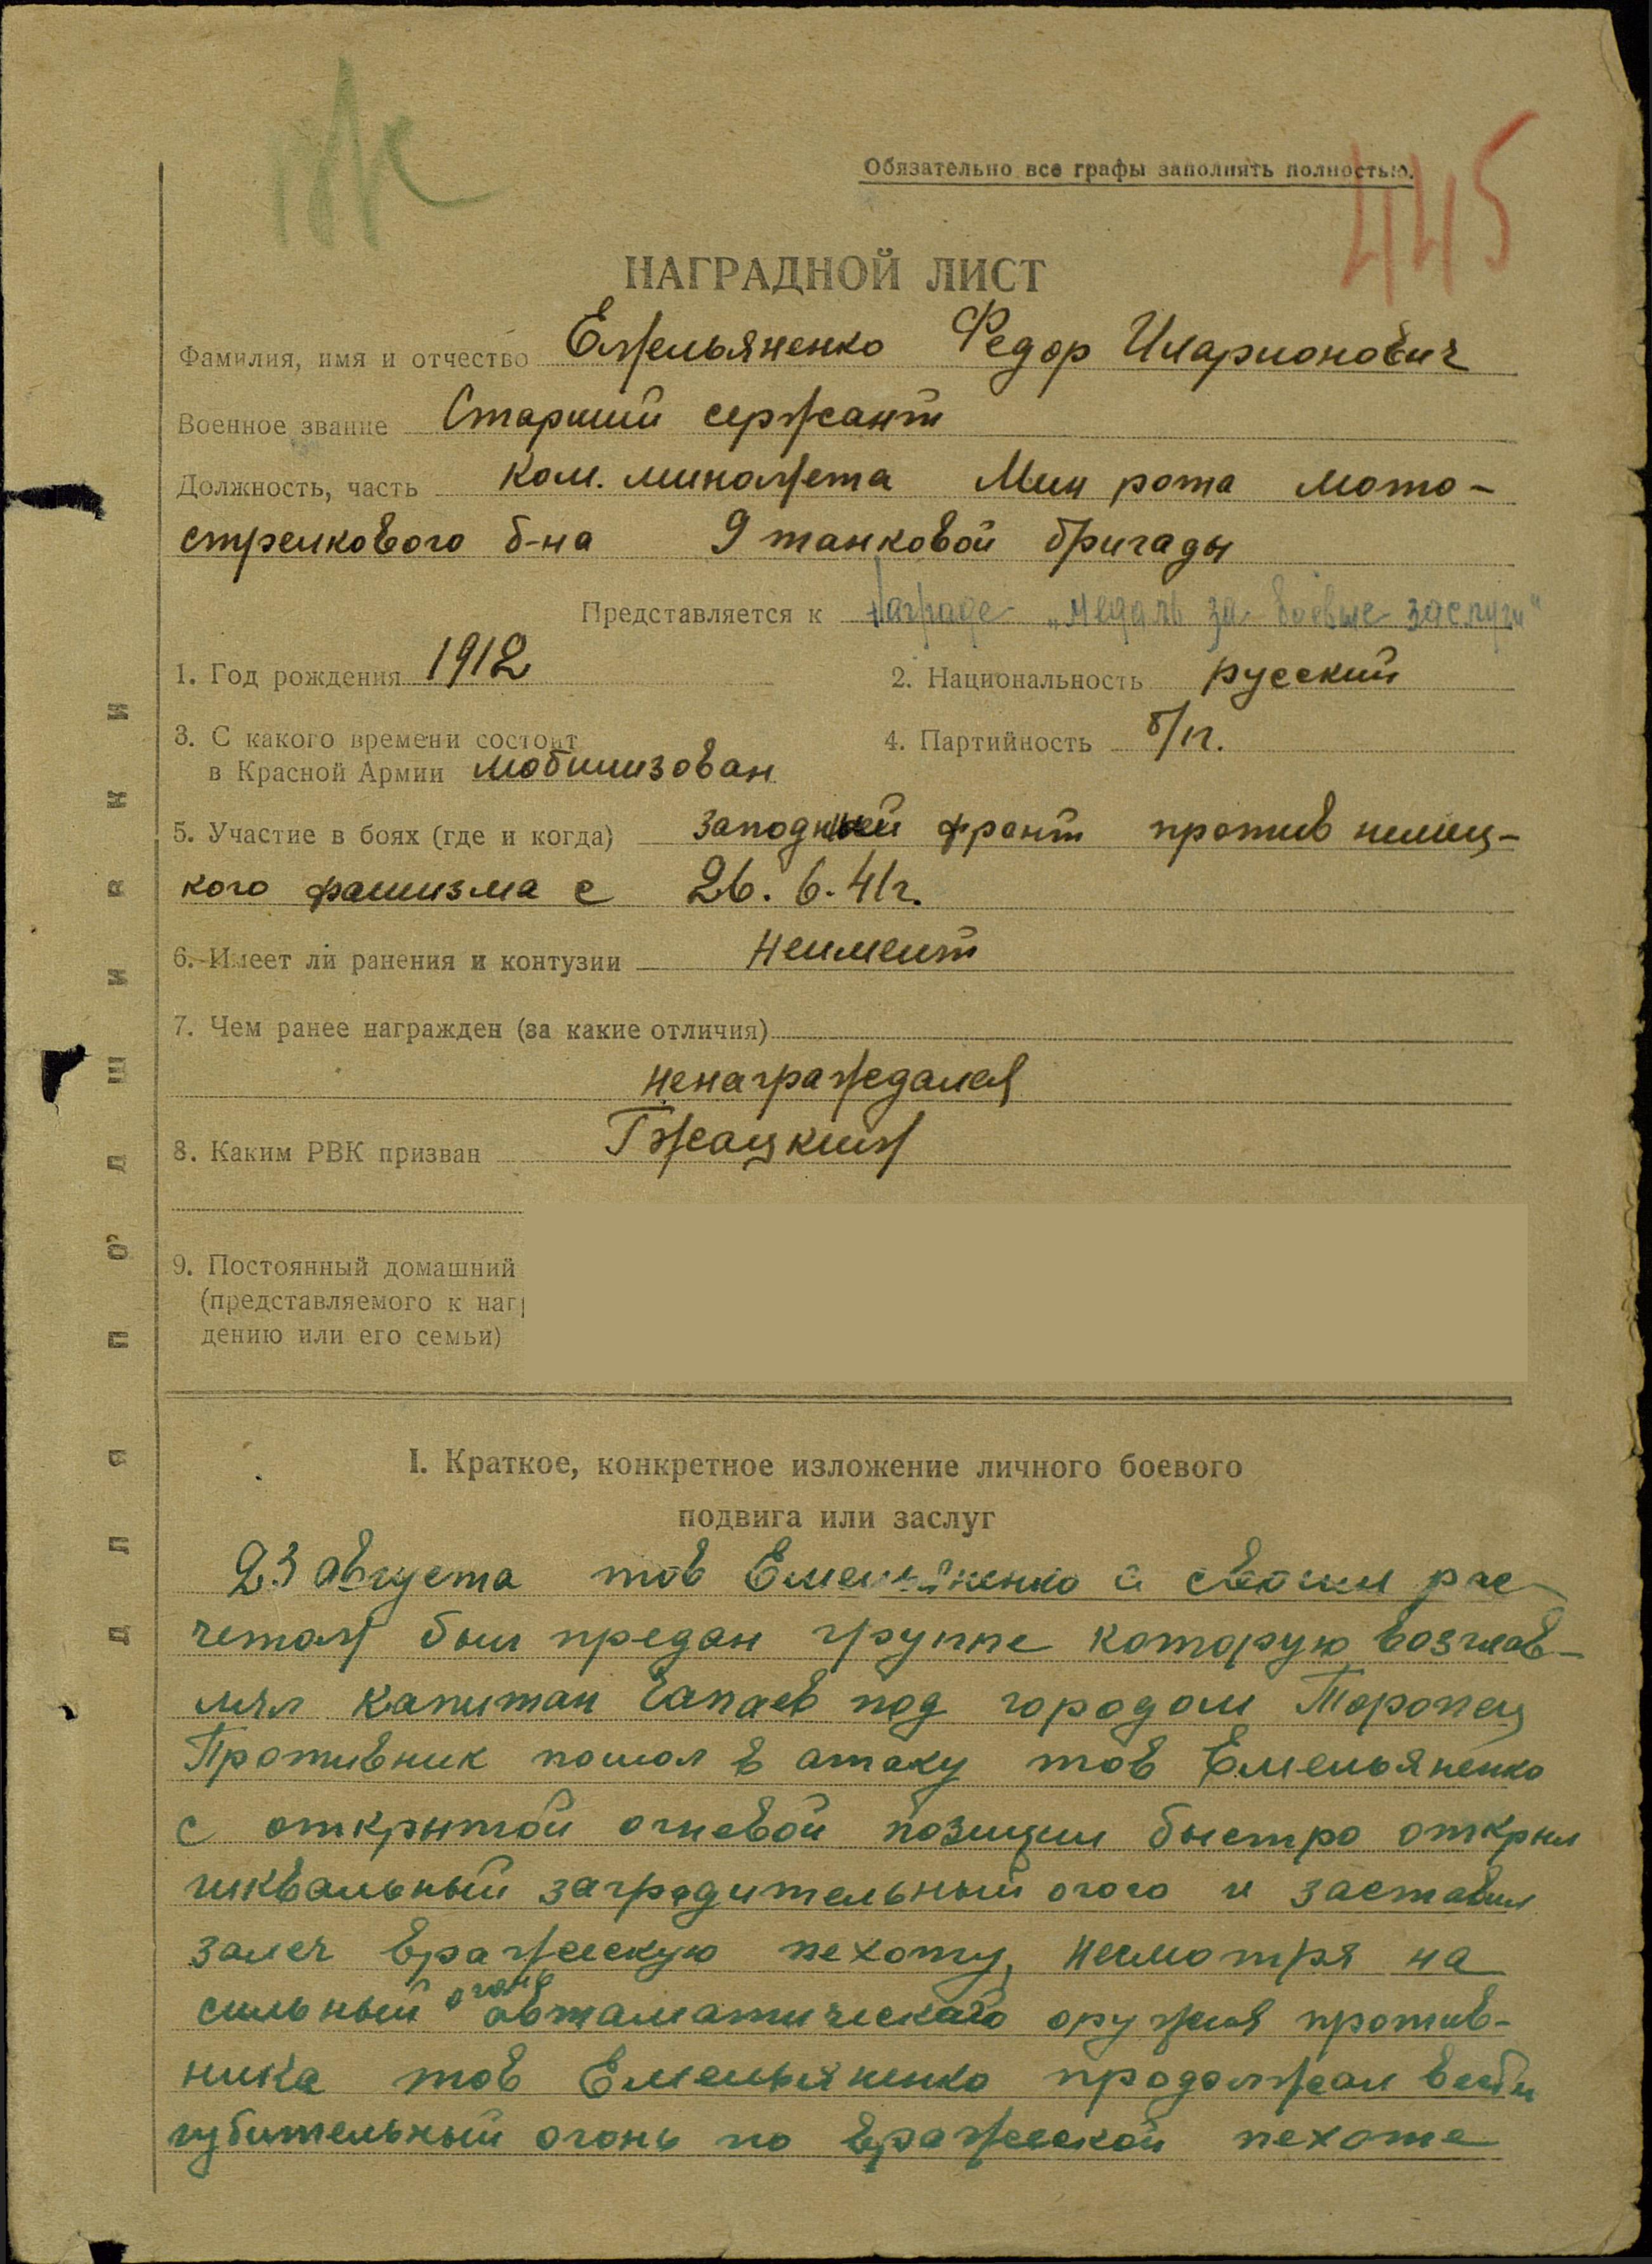 445
Обязательно все графы заполнять полностью.
НАГРАДНОЙ ЛИСТ
Фамилия, имя и отчество Емельяненко Федор Иларионович
Военное звание Старший сержант
Должность, часть Ком. миномета Мин рота мото-
стрелкового б-на 9 танковой бригады
Представляется к награде „медаль за боевые заслуги“
1. Год рождения 1912
2. Национальность русский
3. С какого времени состоит
в Красной Армии мобилизован
4. Партийность б/п.
5. Участие в боях (где и когда) Западный фронт против немец-
кого фашизма с 26.6.41г.
6. Имеет ли ранения и контузии неимеит
7. Чем ранее награжден (за какие отличия)
ненаграждался
8. Каким РВК призван Гжацким
9. Постоянный домашний
(представляемого к наг
дению или его семьи)
I. Краткое, конкретное изложение личного боевого
подвига или заслуг
23 августа тов Емельяненко с своим рас-
четом был предан группе которую возглав-
лял капитан Чапаев под городом Торопец
Противник пошол в атаку тов Емельяненко
с открытой огневой позиции быстро открыл
шквальный заградительный огого и заставил
залеч вражескую пехоту, несмотря на
сильный огонь автаматическаго оружия против-
ника тов Емельяненко продолжал вести
губительный огонь по вражеской пехоте
ДЛЯ ПОДШИВКИ